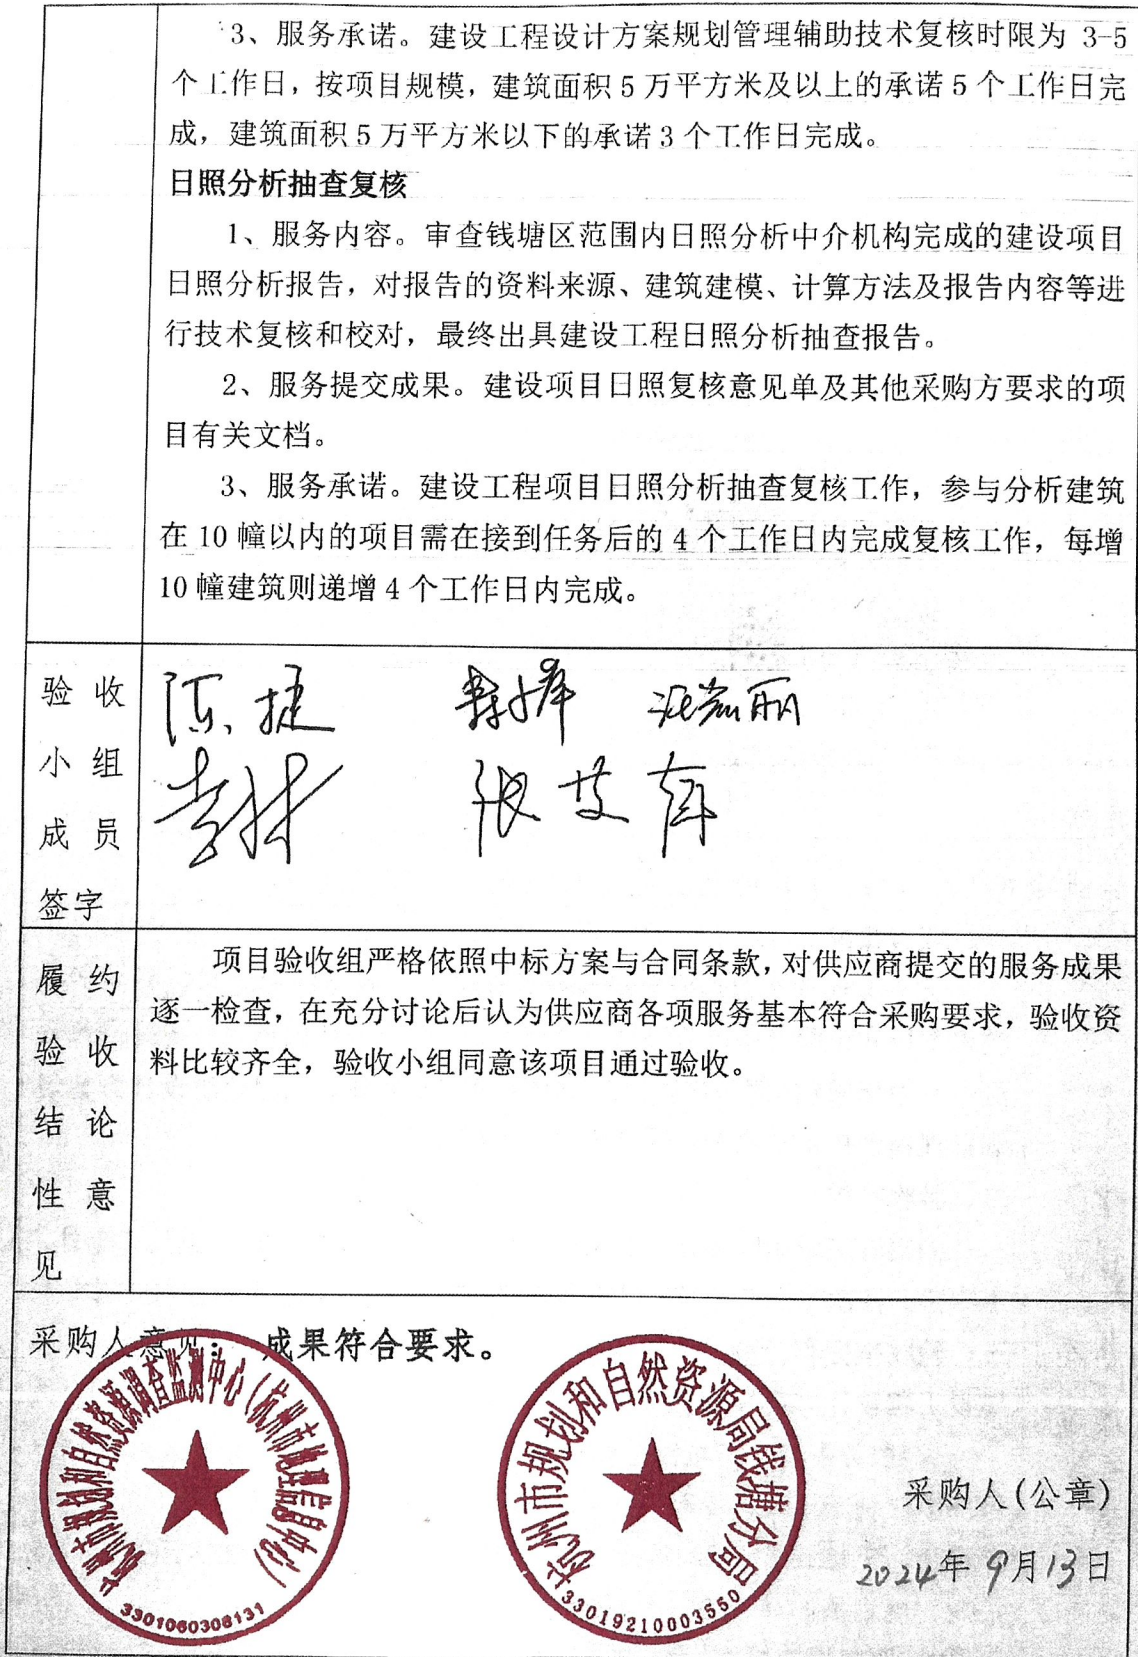 3、服务承诺。建设工程设计方案规划管理辅助技术复核时限为 3-5
个工作日，按项目规模，建筑面积 5 万平方米及以上的承诺 5 个工作日完
成，建筑面积 5 万平方米以下的承诺 3 个工作日完成。
日照分析抽查复核
1、服务内容。审查钱塘区范围内日照分析中介机构完成的建设项目
日照分析报告，对报告的资料来源、建筑建模、计算方法及报告内容等进
行技术复核和校对，最终出具建设工程日照分析抽查报告。
2、服务提交成果。建设项目日照复核意见单及其他采购方要求的项
目有关文档。
3、服务承诺。建设工程项目日照分析抽查复核工作，参与分析建筑
在 10 幢以内的项目需在接到任务后的 4 个工作日内完成复核工作，每增
10 幢建筑则递增 4 个工作日内完成。
验 收
小 组
成 员
签字
陈捷
履 约
验 收
结 论
性 意
见
项目验收组严格依照中标方案与合同条款，对供应商提交的服务成果
逐一检查，在充分讨论后认为供应商各项服务基本符合采购要求，验收资
料比较齐全，验收小组同意该项目通过验收。
采购人意见： 成果符合要求。
杭州市规划和自然资源调查监测中心（杭州市地理信息中心）
3301060308131
杭州市规划和自然资源局钱塘分局
33019210003560
采购人(公章)
2024年 9月13日